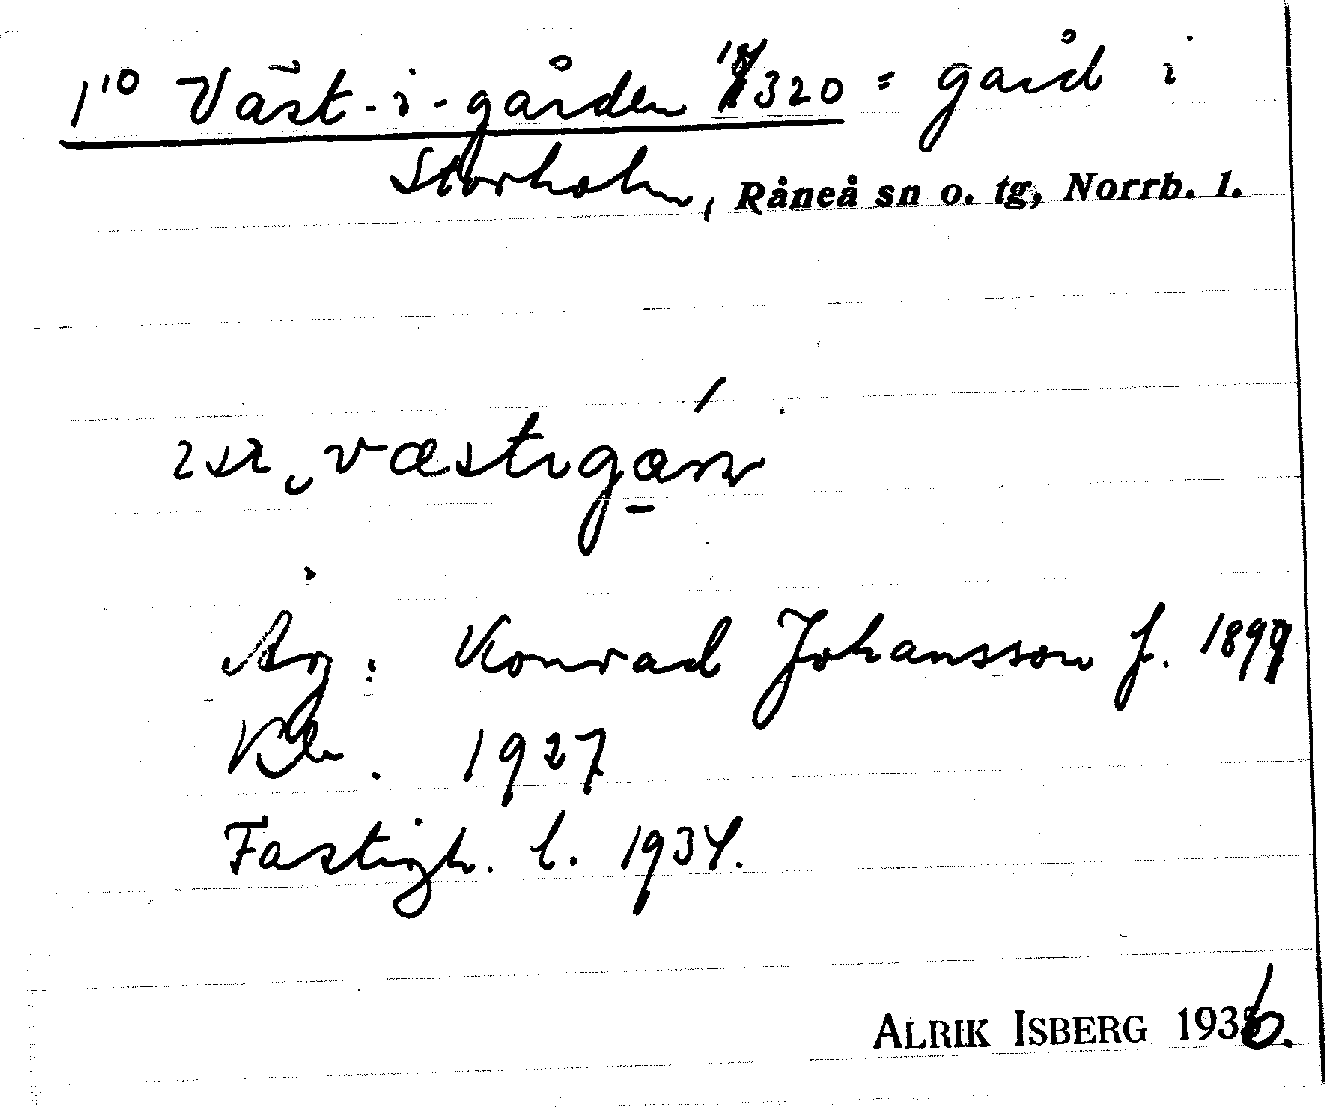 1¹⁰ Väst-i-gården 320 = gård i
Storholm, Råneå sn o. tg, Norrb. l.
væstıgaɳ
Äg: Konrad Johansson f. 1899
Kln. 1927
Fastigh. l. 1934.
ALRIK ISBERG 1936.